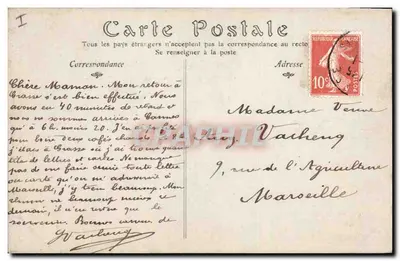 I
Carte Postale
Tous les pays étrangers n'acceptent pas la correspondance au recto
Se renseigner à la poste
Correspondance
Adresse
10
Chère Maman. Mon retour à
Grasse s'est bien effectué. Nous
avons eu 40 minutes de retard et
nous ne sommes arrivés à Cannes
qu'à 6h. moins 20. J'en ai
bien
j'étais à Grasse où j'ai trouvé quan-
tité de lettres et cartes. Ne manque
pas de me faire suivre toute lettre
ou carte qu'on m'adresserait à
Marseille, j'y tiens beaucoup. Mon
rhume va beaucoup mieux
Bons baisers de
Vacheny
Madame Veuve
Vacheny
9, rue de l'Agriculture
Marseille